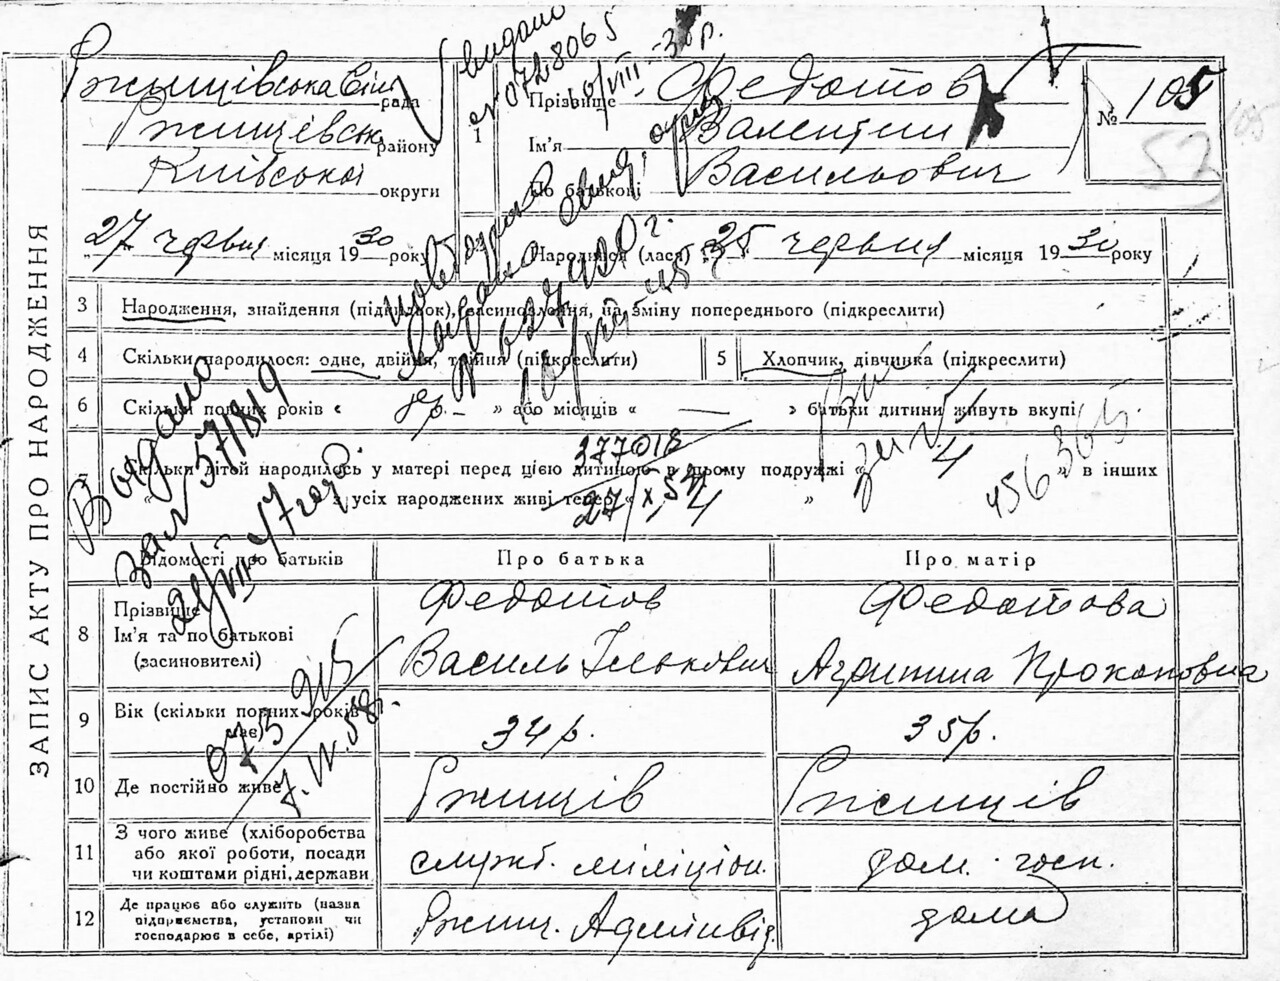 ЗАПИС АКТУ ПРО НАРОДЖЕННЯ
Ржищівська рада
Ржищівськ району
Київської округи
27 червня місяця 1930 року
1 Прізвище Федотов
Ім'я Валентин
По батькові Васильович
№ 105
52
105
Народився (лася) 25 червня місяця 1930 року
видано
0728065
3 Народження, знайдення (підкидьок), засиновлення, на зміну попереднього (підкреслити)
4 Скільки народилося: одне, двійня, трійня (підкреслити)
5 Хлопчик, дівчинка (підкреслити)
6 Скільки повних років « — » або місяців « — » батьки дитини живуть вкупі
7 Скільки дітей народилось у матері перед цією дитиною в цьому подружжі « 4 » в інших
« з усіх народжених живі тепер « 4 »
377018
27/X 57
456365
Видано
571819
Відомості про батьків
Про батька
Про матір
8 Прізвище
Ім'я та по батькові
(засиновителі)
Федотов
Василь Ількович
Федотова
Агрипина Прокоповна
073 915
7.IV.58г.
9 Вік (скільки повних років має)
34 р.
35 р.
10 Де постійно живе
Ржищів
Ржищів
11 З чого живе (хліборобства
або якої роботи, посади
чи коштами рідні, держави
служб. міліціон.
дом. госп.
12 Де працює або служить (назва
підприємства, установи чи
господарює в себе, артілі)
Ржищ. Адмінвід.
дома